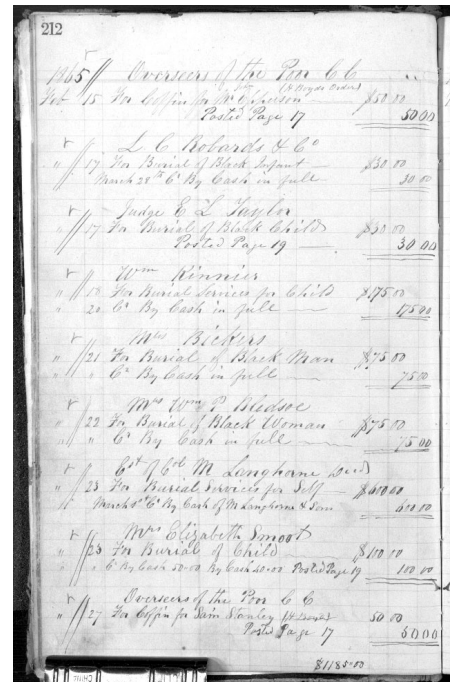 212
1865 Overseers of the Poor C.C.
Feb 15 For Coffin for (H Boyds Order) $50.00
Posted Page 17 50 00
L C Robards & Co
" 17 For Burial of Black Infant $30 00
March 28th Cr By Cash in full 30 00
Judge E L Taylor
" 17 For Burial of Black Child $30 00
Posted Page 19 30 00
Wm Kinnier
" 18 For Burial Services for Child $175 00
" 20 Cr By Cash in full 175 00
Mrs Bickers
" 21 For Burial of Black Man $75 00
" " Cr By Cash in full 75 00
Mrs Wm P Bledsoe
" 22 For Burial of Black Woman $75 00
" " Cr By Cash in full 75 00
Est of Col M Langhorne Decd
" 23 For Burial Services for Self $600 00
March 8th Cr By Cash of M Langhorne & Son 600 00
Mrs Elizabeth Smoot
" 23 For Burial of Child $100 00
" " Cr By Cash 50.00 By Cash 40.00 Posted Page 19 100 00
Overseers of the Poor C C
" 27 For Coffin for Sam Stanley 50.00
Posted Page 17 50 00
$1185.00